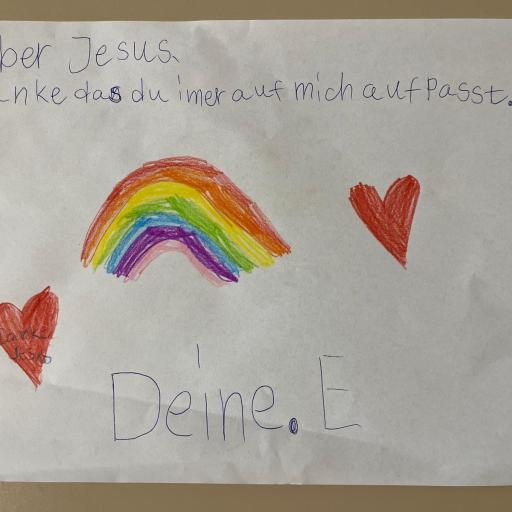 ber Jesus.
nke das du imer auf mich aufPasst.
Deine. E